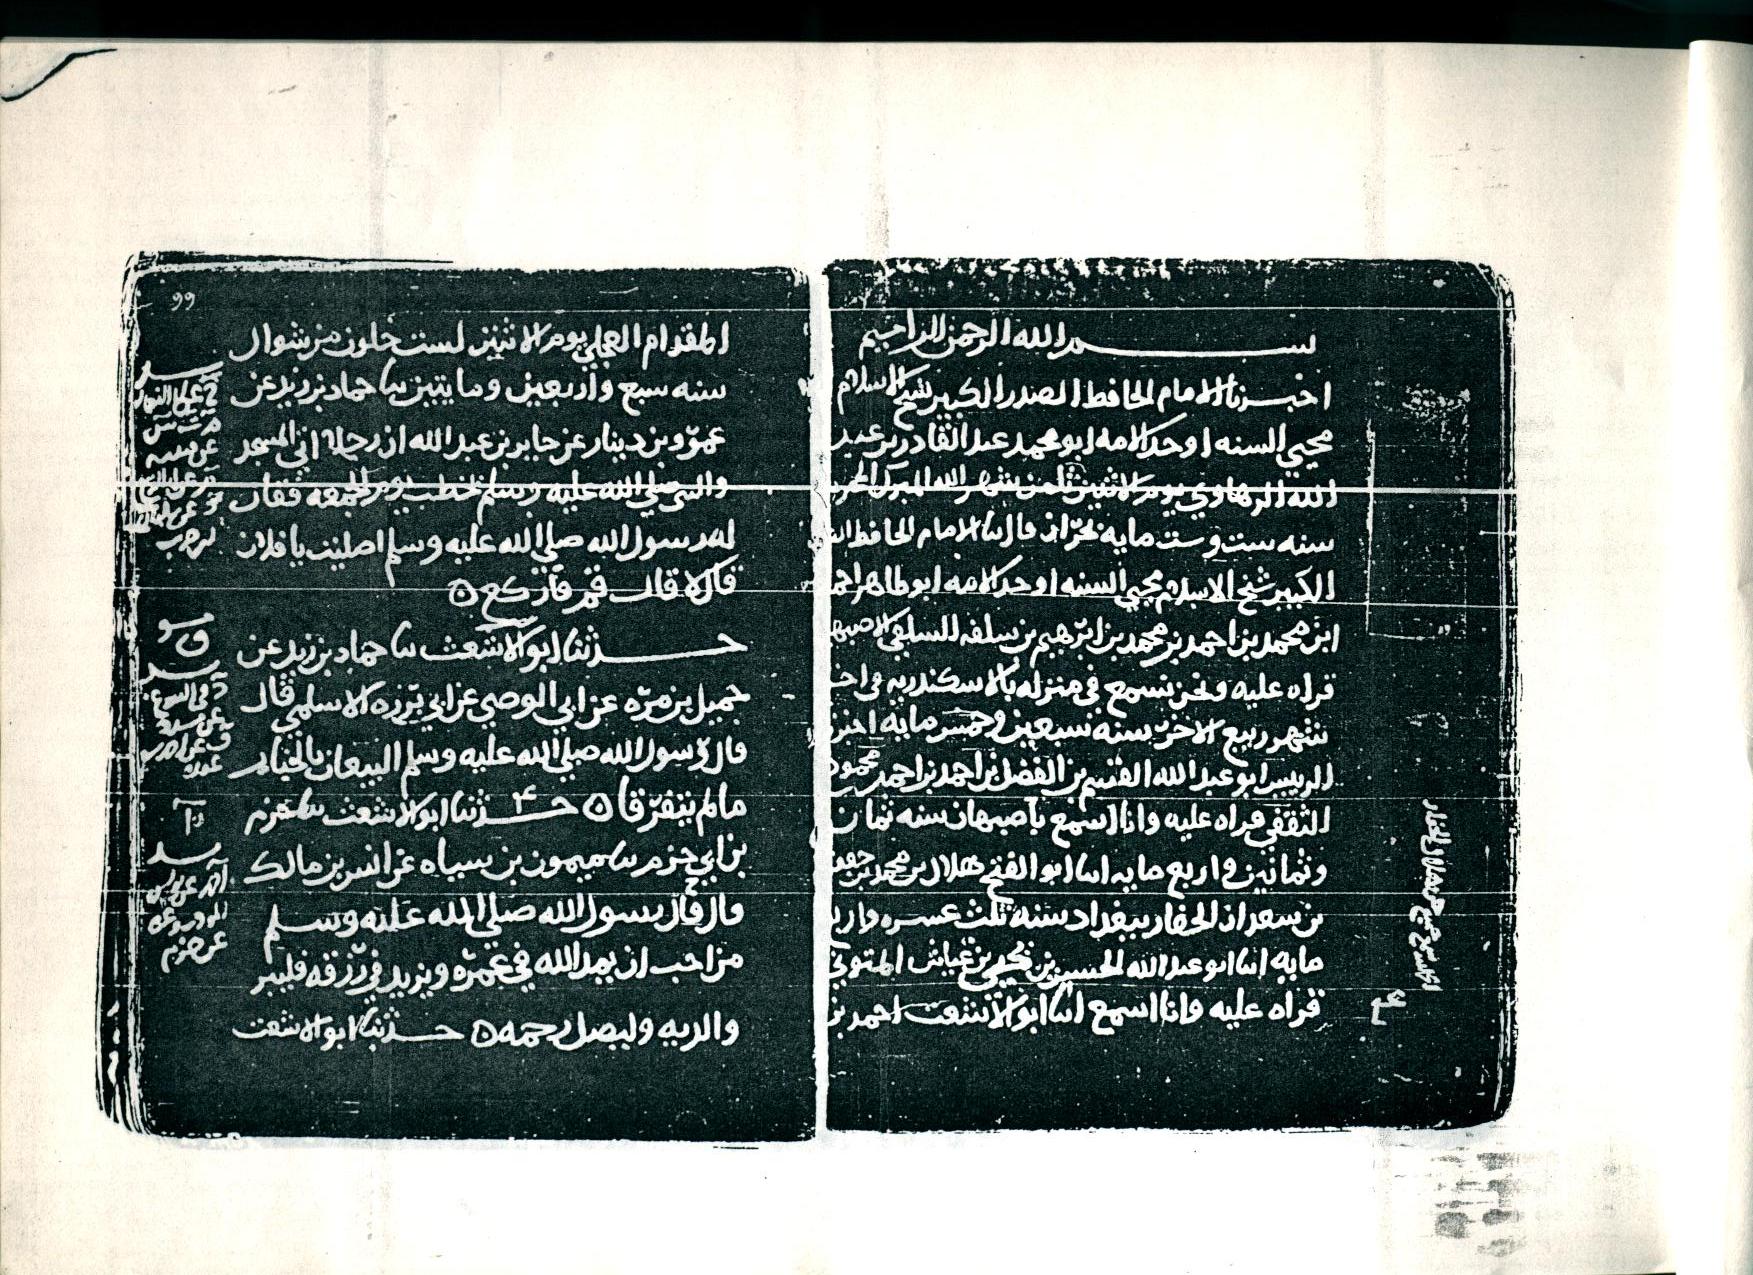 بسم الله الرحمن الرحيم
اخبرنا الامام الحافظ الصدر الكبير شيخ الاسلام
محيي السنه اوحد الامه ابو محمد عبد القادر بن عبد
الله الرهاوي يوم الاثنين ثامن شهر الله المبرك المحرم
سنه ست وست مايه بحران قال انا الامام الحافظ
الكبير شيخ الاسلام محيي السنه اوحد الامه ابو طاهر احمد
ابن محمد بن احمد بن محمد بن ابرهيم بن سلفه السلفي الاصبها
قراه عليه ونحن نسمع في منزله بالاسكندريه في اخر
شهر ربيع الاخر سنه سبعين وخمس مايه اخبرنا
الرييس ابو عبد الله القسم بن الفضل بن احمد بن احمد بن محمود
الثقفي قراه عليه وانا اسمع باصبهان سنه ثمان
وثمانين واربع مايه انا ابو الفتح هلال بن محمد بن جعفر
بن سعدان الحفار ببغداد سنه ثلث عشره واربع
مايه انا ابو عبد الله الحسين بن يحيى بن عياش المتوثي
قراه عليه وانا اسمع انا ابو الاشعث احمد بن
٩٩
المقدام العجلي يوم الاثنين لست خلون من شوال
سنه سبع واربعين ومايتين نا حماد بن زيد عن
عمرو بن دينار عن جابر بن عبد الله ان رجلا اتى المسجد
والنبي صلى الله عليه وسلم يخطب يوم الجمعه فقال
له رسول الله صلى الله عليه وسلم اصليت يا فلان
قال لا قال قم فاركع ه
حدثنا ابو الاشعث نا حماد بن زيد عن
جميل بن مره عن ابي الوضي عن ابي برزه الاسلمي قال
قال رسول الله صلى الله عليه وسلم البيعان بالخيار
مالم يتفرقا ه حدثنا ابو الاشعث نا حزم
بن ابي حزم نا ميمون بن سياه عن انس بن مالك
قال قال رسول الله صلى الله عليه وسلم
من احب ان يمد الله في عمره ويزيد في رزقه فليبر
والديه وليصل رحمه ه حدثنا ابو الاشعث